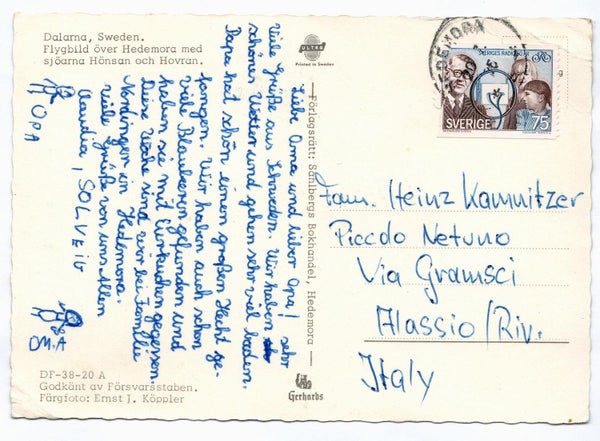 Dalarna, Sweden.
Flygbild över Hedemora med
sjöarna Hönsan och Hovran.
ULTRA
Printed in Sweden
HEDEMORA
SVERIGES RADIO 50 ÅR
SVERIGE 75
Liebe Oma und lieber Opa!
Viele Grüße aus Schweden. Wir haben sehr
schönes Wetter und gehen sehr viel baden.
Papa hat schon einen großen Hecht ge-
fangen. Wir haben auch schon
viele Blaubeeren gefunden und
haben sie mit Eierkuchen gegessen.
Diese Woche sind wir bei Familie
in Hedemora.
Viele Grüße von uns Allen
Claudia, SOLVEIG
OPA
OMA
Förlagsrätt: Sahlbergs Bokhandel, Hedemora
Fam. Heinz Kamnitzer
Piccolo Netuno
Via Gramsci
Alassio/Riv.
Italy
DF-38-20 A
Godkänt av Försvarsstaben.
Färgfoto: Ernst J. Köppler
Gerhards